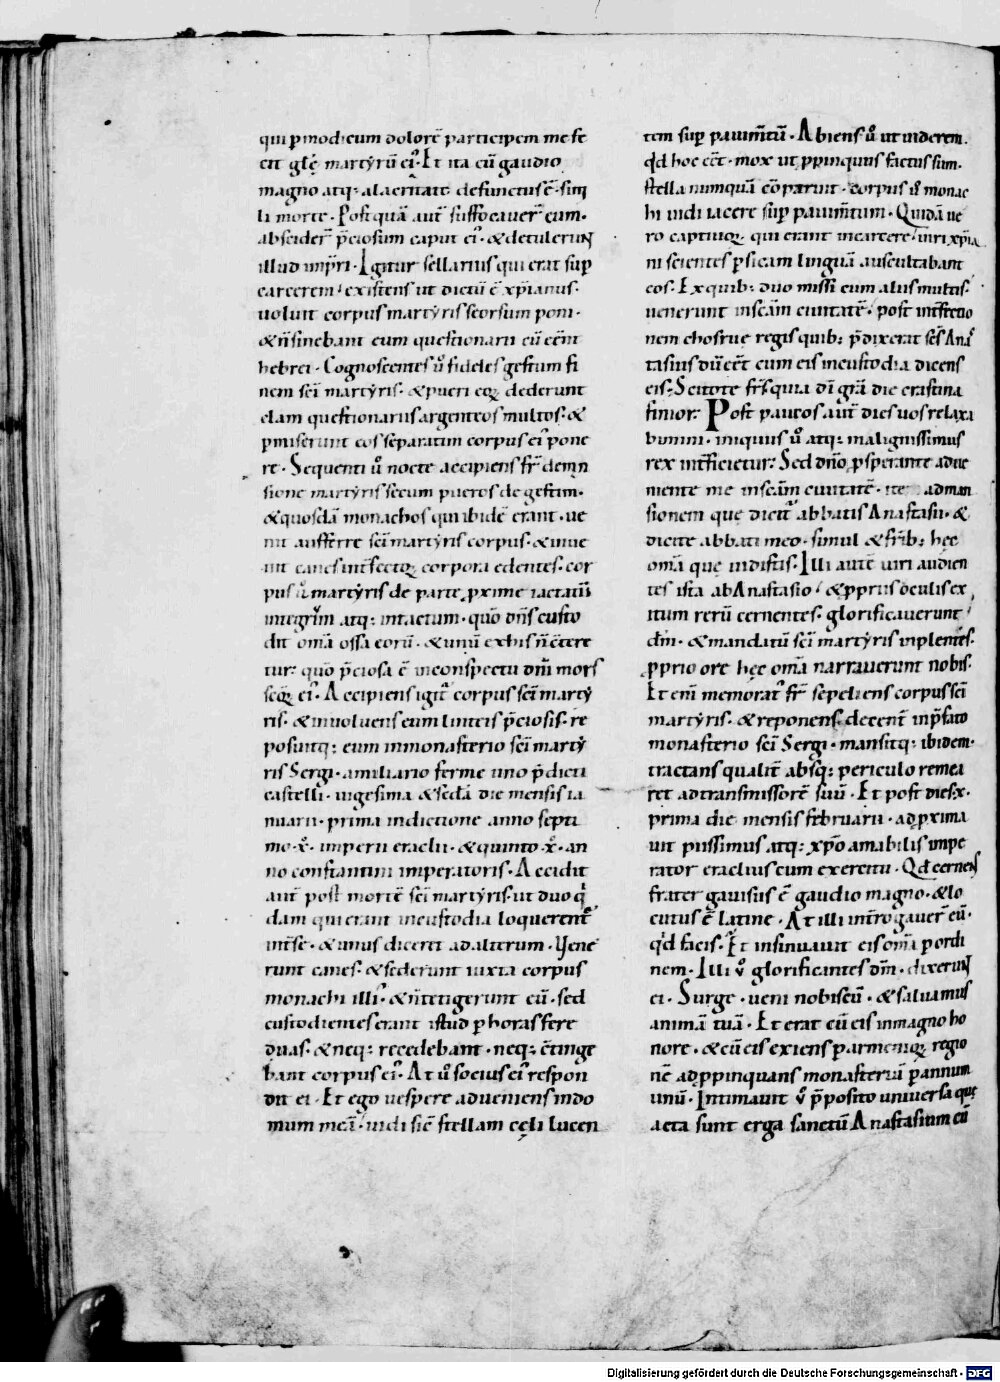 qui p modicum dolorē participem me fe
cit glę martyrū ei᾿. Et ita cū gaudio
magno atq; alacritate defunctus ē. simi
li morte. Postquā aut̄ suffocauer̄ eum.
abscider̄ p̄ciosum caput ei᾿. & detulerunt
illud imp̄ri. Igitur sellarius qui erat sup
carcerem. existens ut dictū ē xp̄ianus.
uoluit corpus martyris seorsum poni.
& n̄ sinebant eum questionarii cū eēnt
hebrei. Cognoscentes ů fideles gestum fi
nem sc̄i martyris. & pueri eoꝝ dederunt
clam questionariis argenteos multos. &
pmiserunt eos separatim corpus ei᾿ pone
re. Sequenti ů nocte accipiens fr̄ de man
sione martyris secum pueros de gestim.
& quosdā monachos qui ibidē erant. ue
nit aufferre sc̄i martyris corpus. & inue
nit canes int̄fectoꝝ corpora edentes. cor
pus ů martyris de parte proxime iactatū
integrum atq; intactum. quō dn̄s custo
dit om̄a ossa eorū. & unū ex his n̄ cōtere
tur. quō p̄ciosa ē in conspectu dn̄i mors
scōꝝ ei᾿. Accipiens igit̄ corpus sc̄i marty
ris. & inuoluens eum linteis p̄ciosis. re
posuitq; eum in monasterio sc̄i marty
ris Sergi. a miliario ferme uno p̄dicti
castelli. uigesima & scd̄a die mensis ia
nuarii. prima indictione anno septi
mo .x̊. imperii eraclii. & quinto .x̊. an
no constantini imperatoris. Accidit
aut̄ post mortē sc̄i martyris. ut duo q̇
dam qui erant in custodia loquerent̄
int̄ se. & unus diceret ad alitrum. Vene
runt canes. & sederunt iuxta corpus
monachi illi᾿. & n̄ tetigerunt eū. sed
custodientes erant istud p horas fere
duas. & neq; recedebant. neq; cōtinge
bant corpus ei᾿. At ů socius ei᾿ respon
dit ei. Et ego uespere adueniens in do
mum meā. uidi sic̄ stellam cęli lucen
tem sup pauim̄tū. Abiens ů ut uiderem.
qd hoc eēt. mox ut ppinquus factus sum.
stella nunquā cōparuit. corpus ů monac
hi uidi iacere sup pauim̄tum. Quidā ue
ro captiuoꝝ qui erant in carcere. uiri xp̄ia
ni scientes psicam linguā auscultabant
eos. Ex quib; duo missi cum aliis multis.
uenerunt in sc̄am ciuitatē. post int̄fectio
nem chosrue regis quib; p̄dixerat sc̄s Ana
tasius dū eēt cum eis in custodia dicens
eis. Scitote fr̄s quia dī grā die crastina
finior. Post paucos aut̄ dies uos relaxa
bimini. iniquus ů atq; malignissimus
rex int̄ficietur. Sed dn̄o psperante adue
niente me in sc̄am ciuitatē. ad man
sionem que dicit̄ abbatis Anastasii. &
dicite abbati meo. simul & fr̄ib; hęc
om̄a que uidistis. Illi autē uiri audien
tes ista ab Anastasio. & pprius oculis ex
itum rerū cernentes. glorificauerunt
dm̄. & mandatū sc̄i martyris inplentes.
pprio ore hęc om̄a narrauerunt nobis.
Et eni memorat᾿ fr̄ sepeliens corpus sc̄i
martyris. & reponens decent̄ in p̄fato
monasterio sc̄i Sergi. mansitq; ibidem.
tractans qualit̄ absq; periculo remea
ret ad transmissorē suū. Et post dies .x.
prima die mensis februarii. ad pxima
uit piissimus atq; xp̄o amabilis impe
rator eraclius cum exercitu. Qd cernens
frater gauisus ē gaudio magno. & lo
cutus ē latine. At illi int̄rogauer̄ eū.
qd facis. Et insinuauit eis om̄a p ordi
nem. Illi ů glorificantes dm̄. dixerunt
ei. Surge. ueni nobiscū. & saluamus
animā tuā. Et erat cū eis in magno ho
nore. & cū eis exiens p armenioꝝ regio
nē ad ppinquans monasteriū p annum
unū. Intimauit ů p̄posito uniuersa quę
acta sunt erga sanctū Anastasium cū
Digitalisierung gefördert durch die Deutsche Forschungsgemeinschaft - DFG